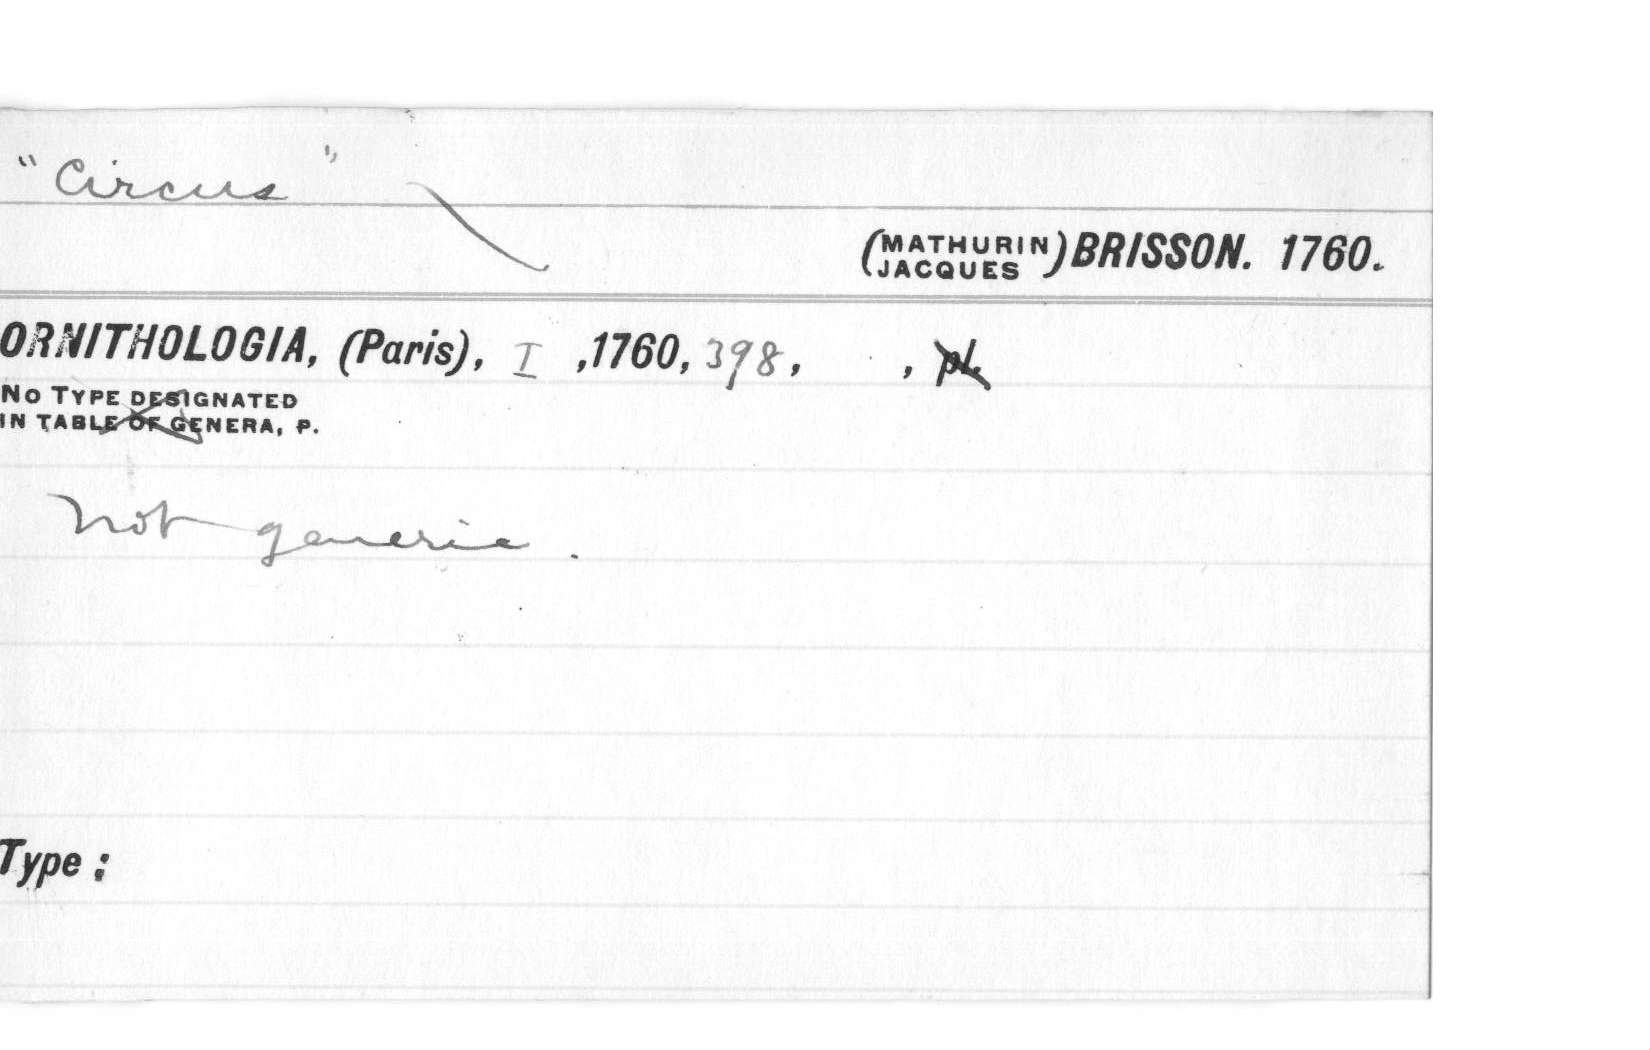 "Circus"
(MATHURIN JACQUES) BRISSON. 1760.
ORNITHOLOGIA, (Paris), I ,1760, 398, , pl.
NO TYPE DESIGNATED
IN TABLE OF GENERA, P.
Not generic.
Type :